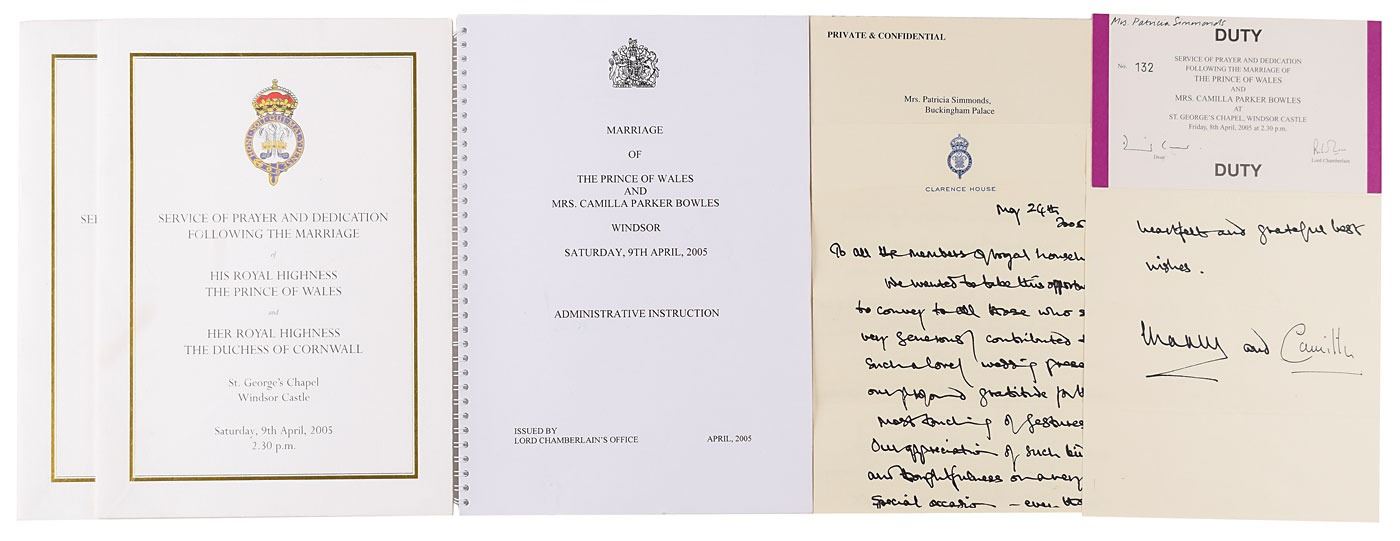 SERVICE OF PRAYER AND DEDICATION
FOLLOWING THE MARRIAGE
of
HIS ROYAL HIGHNESS
THE PRINCE OF WALES
and
HER ROYAL HIGHNESS
THE DUCHESS OF CORNWALL
St. George's Chapel
Windsor Castle
Saturday, 9th April, 2005
2.30 p.m.
MARRIAGE
OF
THE PRINCE OF WALES
AND
MRS. CAMILLA PARKER BOWLES
WINDSOR
SATURDAY, 9TH APRIL, 2005
ADMINISTRATIVE INSTRUCTION
ISSUED BY
LORD CHAMBERLAIN'S OFFICE
APRIL, 2005
PRIVATE & CONFIDENTIAL
Mrs. Patricia Simmonds,
Buckingham Palace
CLARENCE HOUSE
May 24th
2005
To all the members of royal househ
We wanted to take this opportu
to convey to all those who s
very generously contributed
such a lovely wedding prese
our profound gratitude for th
most touching of gestures
Our appreciation of such
and thoughtfulness on a very
special occasion – even
Mrs. Patricia Simmonds
DUTY
No. 132
SERVICE OF PRAYER AND DEDICATION
FOLLOWING THE MARRIAGE OF
THE PRINCE OF WALES
AND
MRS. CAMILLA PARKER BOWLES
AT
ST. GEORGE'S CHAPEL, WINDSOR CASTLE
Friday, 8th April, 2005 at 2.30 p.m.
Dean
Lord Chamberlain
DUTY
heartfelt and grateful best
wishes.
Charles and Camilla